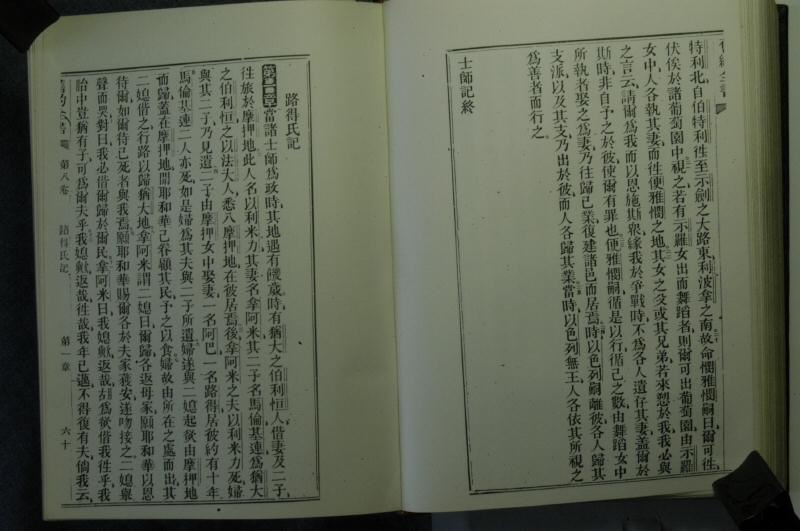 特利北自伯特利徃至示劍之大路東利波拿之南故命憫雅憫嗣曰爾可徃
伏俟於諸葡萄園中視之若有示羅女出而舞蹈者則爾可出葡萄園由示羅
女中人各執其妻而徃便雅憫之地其女之父或其兄弟若來愬於我我必與
之言云請爾爲我而以恩施斯衆緣我於爭戰時不爲各人遺仔其妻蓋爾於
斯時非自予之於彼使爾有罪也便雅憫嗣循是以行循己之數由舞蹈女中
所執者娶之爲妻乃往歸已業復建諸邑而居焉時以色列嗣離彼各人歸其
支派以及其支乃出於彼而人各歸其業當時以色列無王人各依其所視之
爲善者而行之
士師記終
路得氏記
第一章當諸士師爲政時其地遇有饑歲時有猶大之伯利恒人偕妻及二子
往旅於摩押地此人名以利米力其妻名拿阿米其二子名馬倫基連爲猶大
之伯利恒之以法大人悉八摩押地在彼居焉後拿阿米之夫以利米力死婦
與其二子乃見遺二子由摩押女中娶妻一名阿巴一名路得居彼約有十年
馬倫基連二人亦死如是婦爲其夫與二子所遺婦遂與二媳起欲由摩押地
而歸蓋在摩押地聞耶和華已眷顧其民予之以食婦故由所在之處而出其
二媳偕之行路以歸猶大地拿阿米謂二媳曰爾歸各返母家願耶和華以恩
待爾如爾待已死者與我焉願耶和華賜爾各於夫家獲安遂吻接之二媳舉
聲而哭對曰我必偕爾歸於爾民拿阿米曰我媳歟返哉胡爲欲偕我徃乎我
胎中豈猶有子可爲爾夫乎我媳歟返哉徃哉我年已邁不得復有夫倘我云
第八卷 路得氏記 第一章 六十